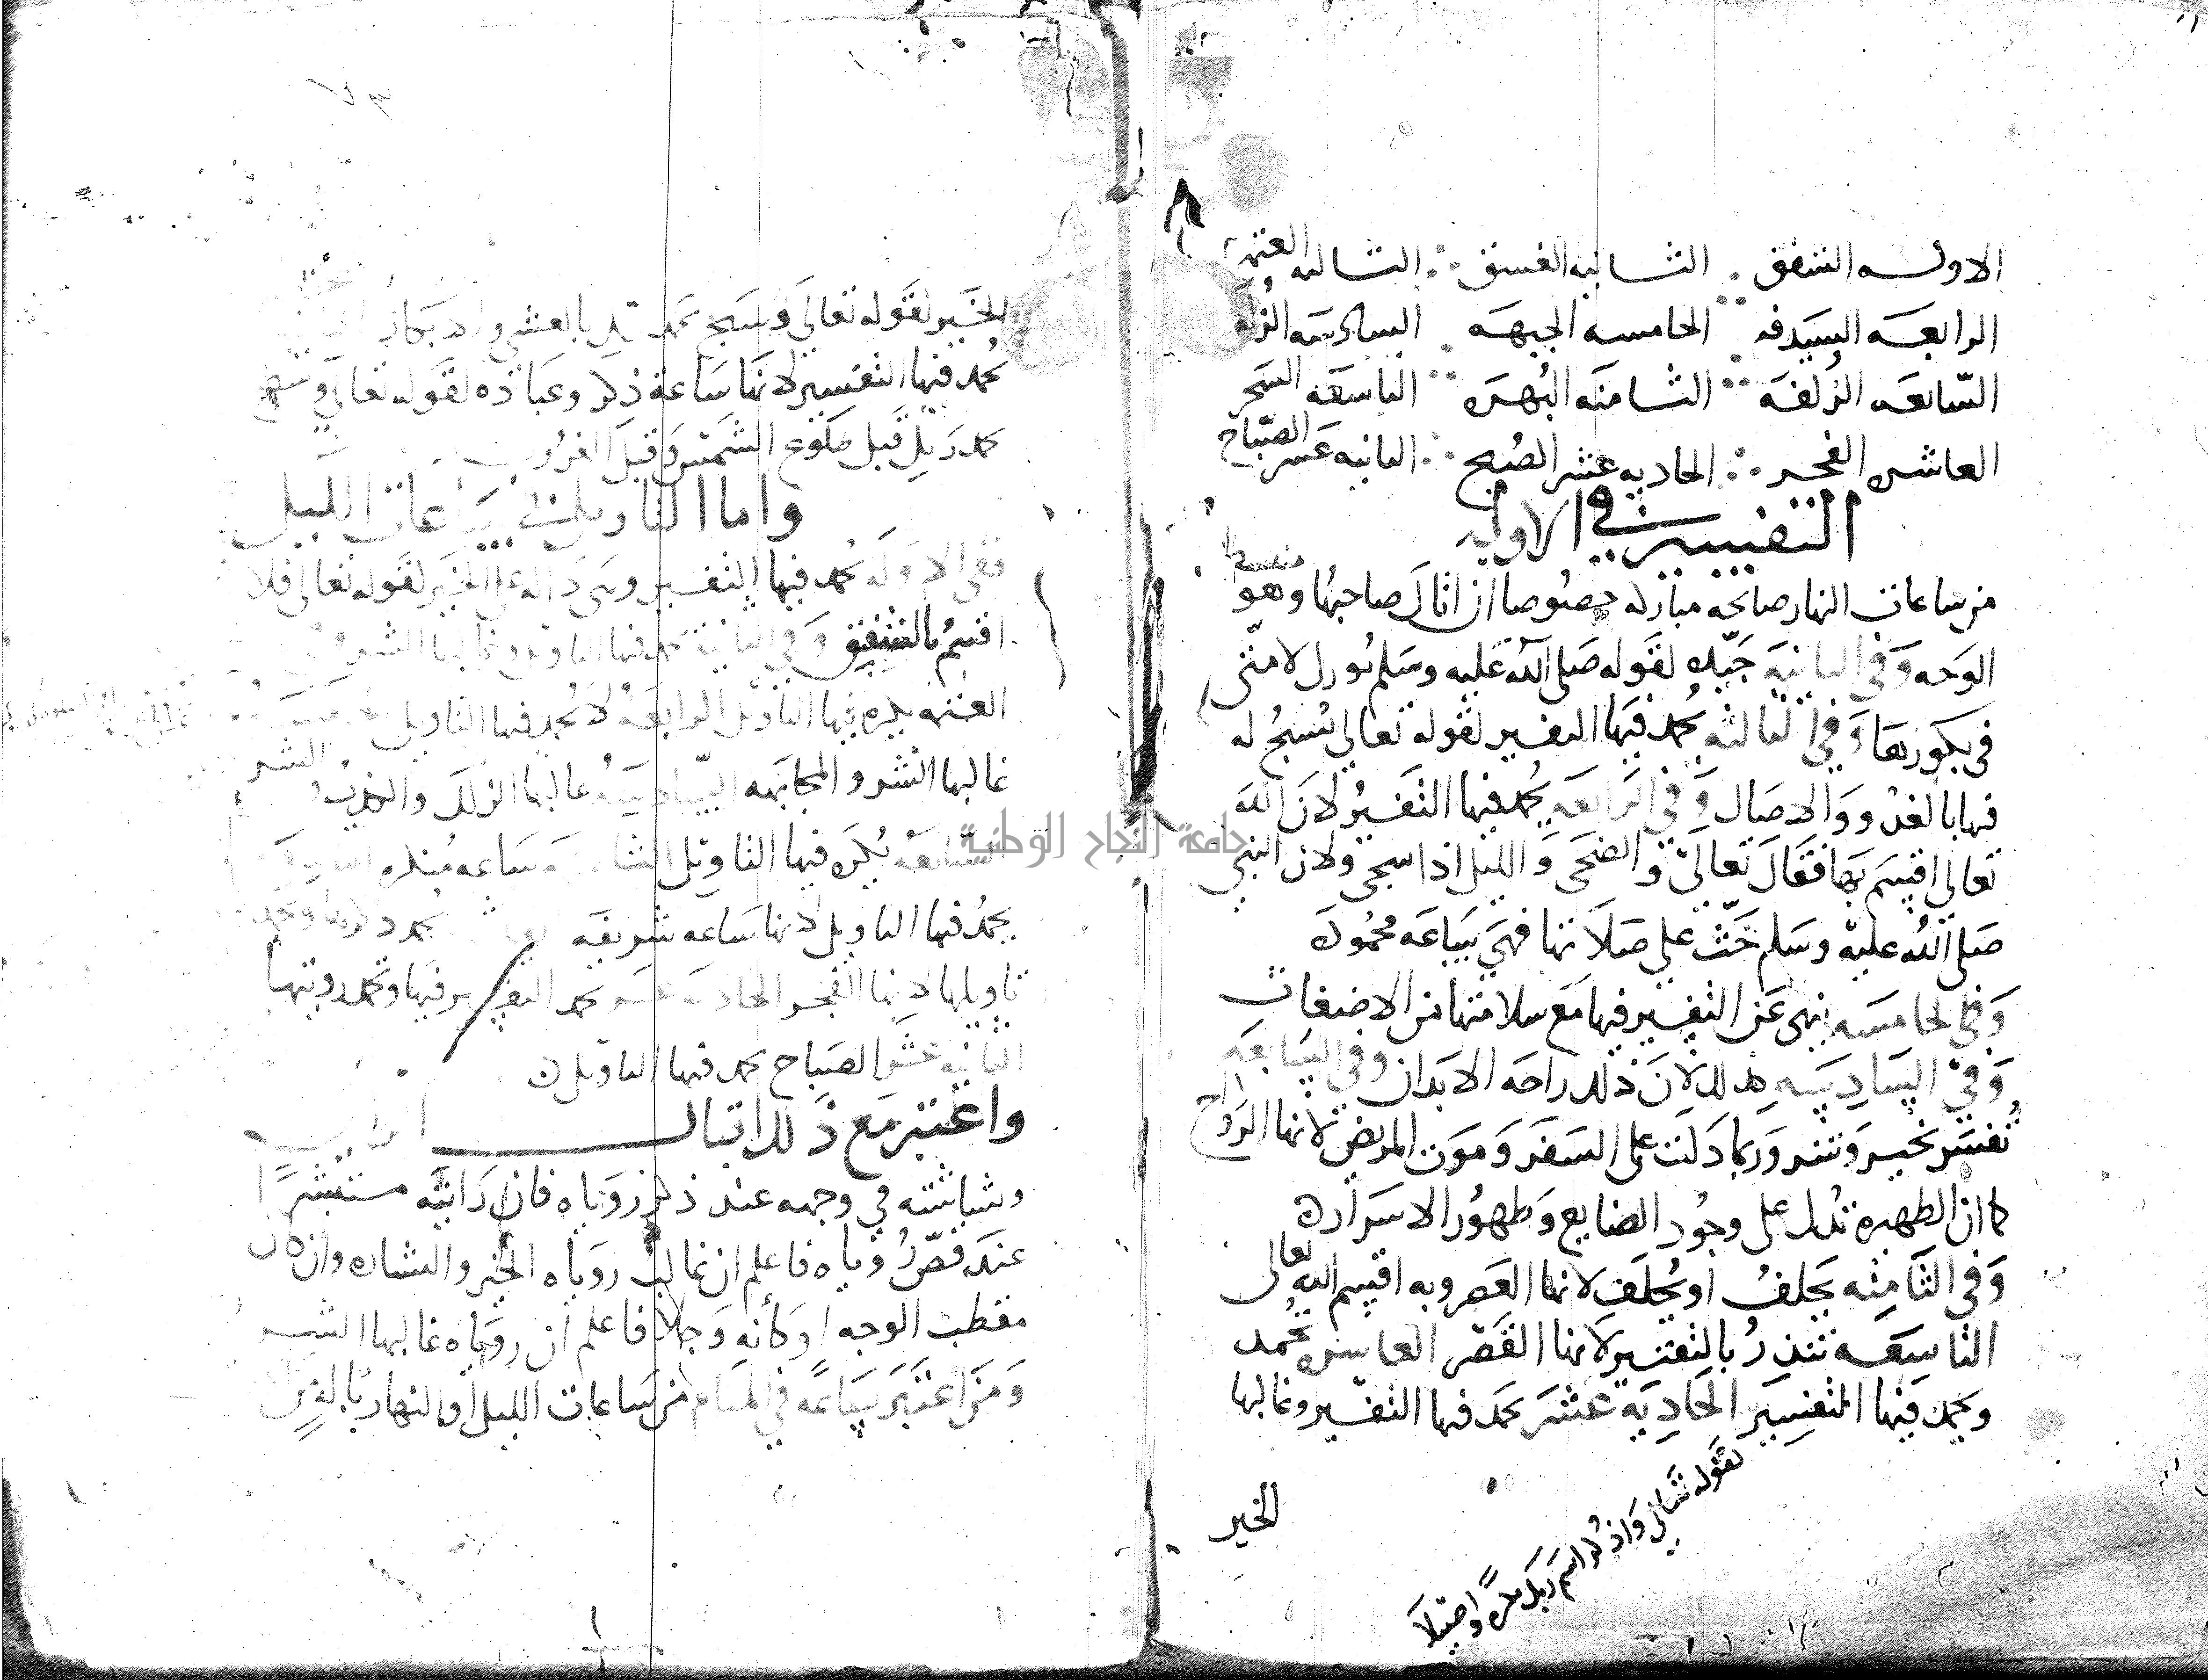 الاوله الشفق الثانيه الغسق الثالثه العتمه
الرابعه السدفه الخامسه الجبهه السادسه الزله
السّابعه الزلفة الثامنه البُهرَه التاسعه السحر
العاشره الفجر الحاديه عشر الصبح الثانيه عشر الصّباح
التفسير في الاوله
من ساعات النهار صالحه مباركه خصوصا ان اتاك صاحبها وهو منبسط
الوجه وفي الثانية جيّده لقوله صلى الله عليه وسلم بورك لامتى
في بكورها وفي الثالثه يُحمد فيها التفسير لقوله تعالى يُسبح له
فيها بالغدو والاصال وفي الرابعه يحمد فيها التفسيرُ لان الله
تعالى اقسم بها فقال تعالى والضحى والليل اذا سجى ولان النبي
صلى الله عليه وسلم حَثّ على صلاتها فهي ساعه محموده
وفي الخامسه ينهى عن التفسير فيها مع سلامتها من الاضغاث
وفي السادسه كذلك لان ذلك راحه الابدان وفي السابعه
تُفسر بخير وشر وربما دلت على السفر وموت المريض لانها الرواح
كما ان الظهيره تدل على وجُود الضايع وظهُور الاسرار
وفي الثامنه يحلفُ او يُحلف لانها العصر وبه اقسم الله تعالى
التاسعه تنذرُ بالتفسير لانها القصر العاشره يُحمد
ويحمد فيها التفسير الحادية عشر يحمد فيها التفسير وغالبها
لقوله تعالى واذكر اسم ربك بكرةً واصيلا
الخير
الخير لقوله تعالى وسبح بحمد ربك بالعشي والابكار
يُحمد فيها التفسير لانها ساعة ذكر وعباده لقوله تعالى وسبح
بحمد ربك قبل طلوع الشمس وقبل الغروب
واما التاويل في ساعات الليل
ففى الاوله يُحمد فيها التفسير على الخير لقوله تعالى فلا
اقسمُ بالشفق وفي الثانية يحمد فيها التاويل وغالبها الشر
العتمه يكره فيها التاويل الرابعهُ لا يُحمد فيها التاويل
غالبها الشر والمجابهه السّادسهُ غالبها الزلل والكذبُ
السّابعه يُكره فيها التاويل ساعه مُنكره
يحمدُ فيها التاويل لانها ساعه شريفه
تاويلها لانها الفجر الحاديه عشر يحمد التفسير فيها ويحمد رويتها
الثانيه عشر الصباح يحمد فيها التاويل
واعتبر مع ذلك اقبال
وشباشته في وجهه عند ذكر روياه فان رايته مستبشرًا
عند قصّ رُوياه فاعلم ان غالب روياه الخير والبشاره وان كان
مقطب الوجه او كأنه وجلا فاعلم ان روياه غالبها الشر
ومن اعتبر ساعه في المنام من ساعات الليل او النهار
جامعة النجاح الوطنية